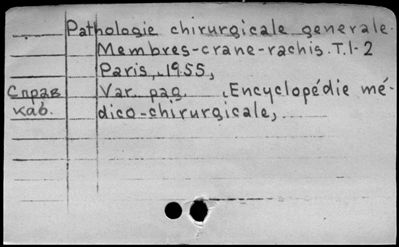 Pathologie chirurgicale generale.
Membres-crane-rachis. T.1-2
Paris, 1955,
Справ Var. pag. (Encyclopédie mé-
каб. dico-chirurgicale,